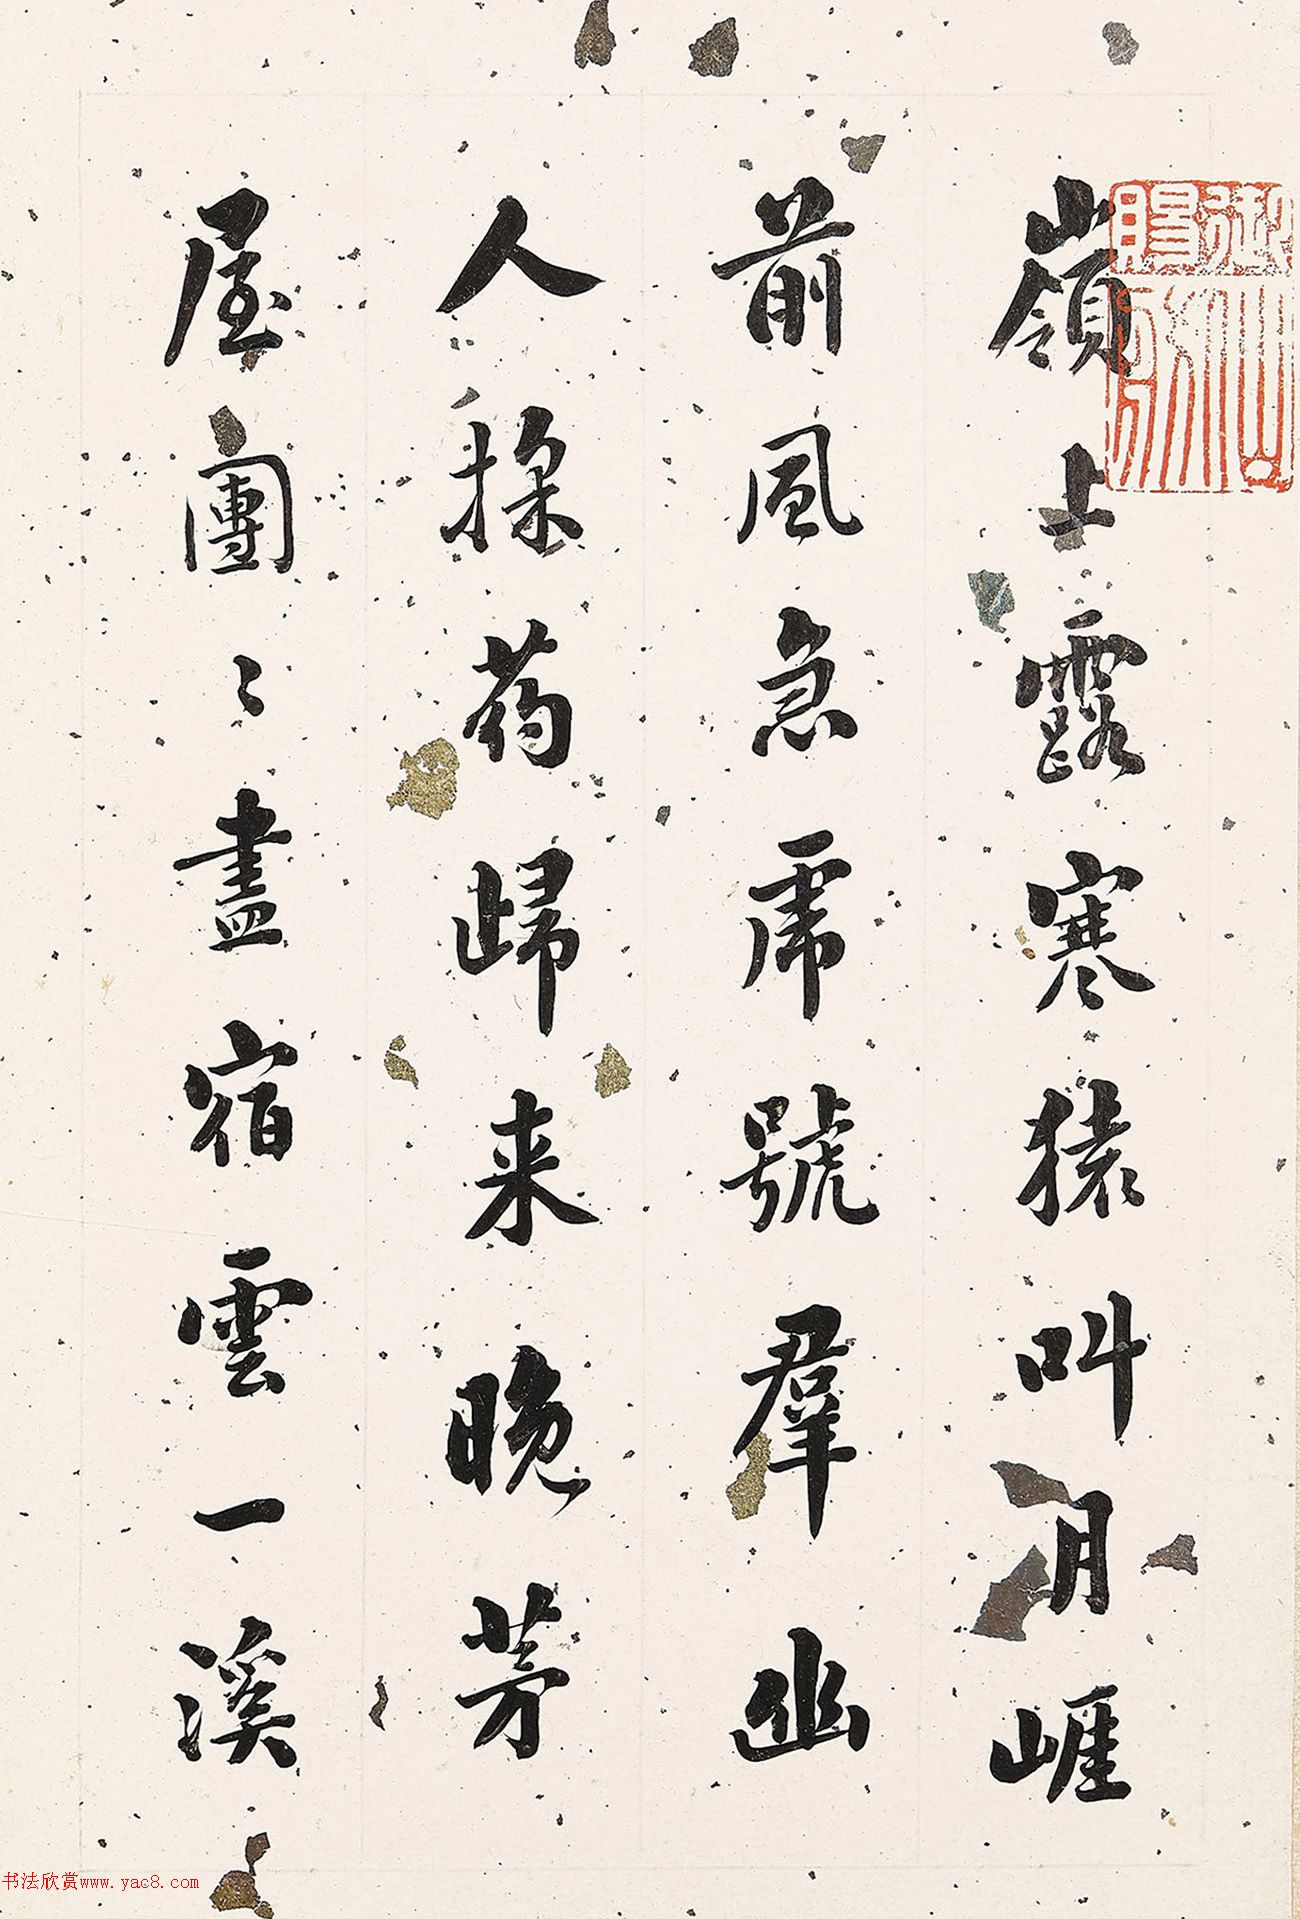 嶺上露寒猿叫月崕
前風急虎號羣幽
人採药歸来晚茅
屋團〻盡宿雲一溪
御賜
书法欣赏www.yac8.com